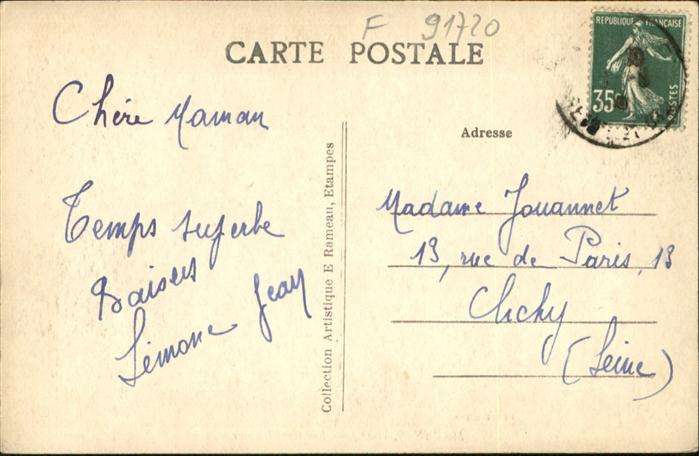 F 91720
CARTE POSTALE
REPUBLIQUE FRANÇAISE
35c
POSTES
Chère Maman
Temps superbe
Baisers
Simone Jean
Collection Artistique E Rameau, Etampes
Adresse
Madame Jouannet
13, rue de Paris, 13
Clichy
(Seine)